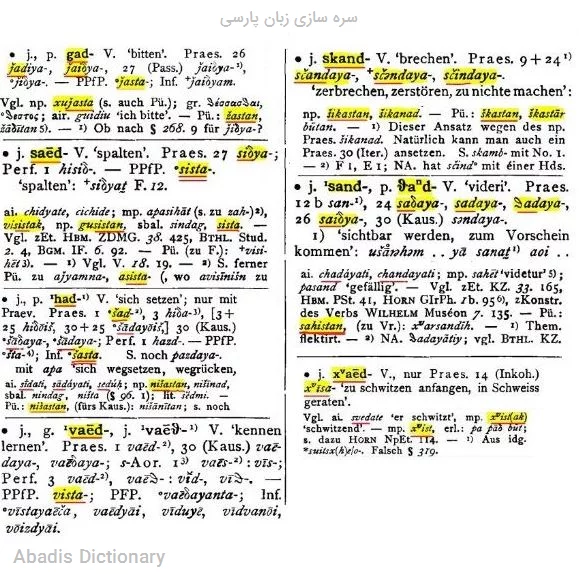 سره سازی زبان پارسی
• j., p. gad- V. 'bitten'. Praes. 26
jadiya-, jaiδya-, 27 (Pass.) jaiδya-¹),
°jiδya-. — PPfP. °jasta-; Inf. +jaiδyam.
Vgl. np. xujasta (s. auch Pü.); gr.
air. guidiu 'ich bitte'. — Pü.: šastan,
šāδītan 5). — ¹) Ob nach § 268. 9 für jiδya-?
• j. saēd- V. 'spalten'. Praes. 27 siδya-;
Perf. 1 hisiδ-. — PPfP. °sista-.
'spalten': +siδyat̰ F. 12.
ai. chidyate, cichide; mp. apasihāt (s. zu zah-)²),
visistak, np. gusistan, sbal. sindag, sista. —
Vgl. zEt. HBM. ZDMG. 38. 425, BTHL. Stud.
2. 4, BGM. IF. 6. 92. — Pü. (zu F.): +visi-
hēt 3). — ¹) Vgl. V. 18. 19. — ²) S. ferner
Pü. zu ajyamna-, asista- (, wo avisīnišn zu
• j., p. ¹had-¹) V. 'sich setzen'; nur mit
Praev. Praes. 1 °šad-²), 3 hiδa-³), [3+
25 hiδōiš, 30+25 °šāδayōiš,] 30 (Kaus.)
°šāδaya-, °šādaya-; Perf. 1 hazd-. — PPfP.
Inf. °šasta. S. noch pazdaya-.
mit apa 'sich wegsetzen, wegrücken,
ai. sīdati, sādáyati, np. nišastan, nišīnad,
sbal. nindag, ništa (§ 96. 1); lit. sėdmi. —
Pü.: nišastan, (fürs Kaus.): nišānītan; s. noch
• j., g. ¹vaēd-, j. ¹vaēϑ-¹) V. 'kennen
lernen'. Praes. 1 vaēd-²), 30 (Kaus.) vaē-
daya-, vaēδaya-; s-Aor. 1³) vaēs-²) : vīs-;
Perf. 3 vaēd-²), vaēϑ- : vīd-, vīϑ-. —
PPfP. vista-; PFP. °vaēδayanta-; Inf.
°vīstayaēča, vaēdyāi, vīduyē, vīdvanōi,
vōizdyāi.
• j. skand- V. 'brechen'. Praes. 9+24¹)
sčandaya-, +sčəndaya-, sčindaya-.
'zerbrechen, zerstören, zu nichte machen':
np. šikastan, šikanad. — Pü.: škastan, škastār
būtan. — ¹) Dieser Ansatz wegen des np.
Praes. šikanad. Natürlich kann man auch ein
Praes. 30 (Iter.) ansetzen. S. skamb- mit No. 1.
— ²) F 1, E 1; NA. hat sānd° mit éiner Hds.
• j. ¹sand-, p. ϑaⁿd- V. 'videri'. Praes.
12 b san-¹), 24 saδaya-, sadaya-, ϑadaya-,
26 saiδya-, 30 (Kaus.) səndaya-.
1) 'sichtbar werden, zum Vorschein
kommen': usə̄nhəm . . yā sanat̰²) aoi . .
ai. chadáyati, chandayati; mp. sahēt 'videtur' 5);
pasand 'gefällig'. — Vgl. zEt. KZ. 33. 165,
HBM. PSt. 41, HORN GIrPh. 1b. 95⁶), zKonstr.
des Verbs WILHELM Muséon 7. 135. — Pü.:
sahistan, (zu Vr.): xᵛarsandīh. — ¹) Them.
flektirt. — ²) NA. ϑadayātiy; vgl. BTHL. KZ.
• j. xᵛaēd- V., nur Praes. 14 (Inkoh.)
xᵛīsa- 'zu schwitzen anfangen, in Schweiss
geraten'.
Vgl. ai. svedate 'er schwitzt', mp. xᵛist(ak)
'schwitzend'. — mp. xᵛist, erl.: pa pāδ būt;
s. dazu HORN NpEt. 114. — ¹) Aus idg.
Falsch § 319.
Abadis Dictionary